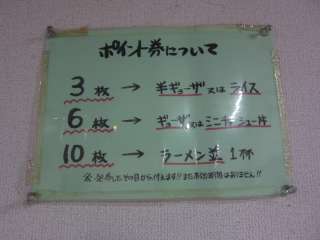 ポイント券について
3枚 → 半ギョーザ 又は ライス
6枚 → ギョーザ 又は ミニチャーシュー丼
10枚 → ラーメン並 1杯
※ 発券したその日から行えます!! また有効期限はありません!!